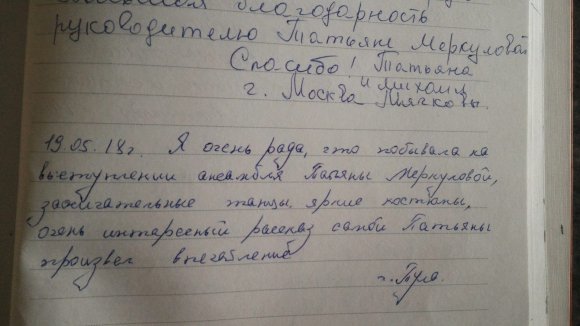 благодарность
руководителю Татьяне Меркуловой
Спасибо! Татьяна
и Михаил
г. Москва Мячковы.
19.05.18г. Я очень рада, что побывала на
выступлении ансамбля Татьяны Меркуловой,
зажигательные танцы, яркие костюмы,
очень интерсеный рассказ самой Татьяны
произвел впечатление
г. Тула.